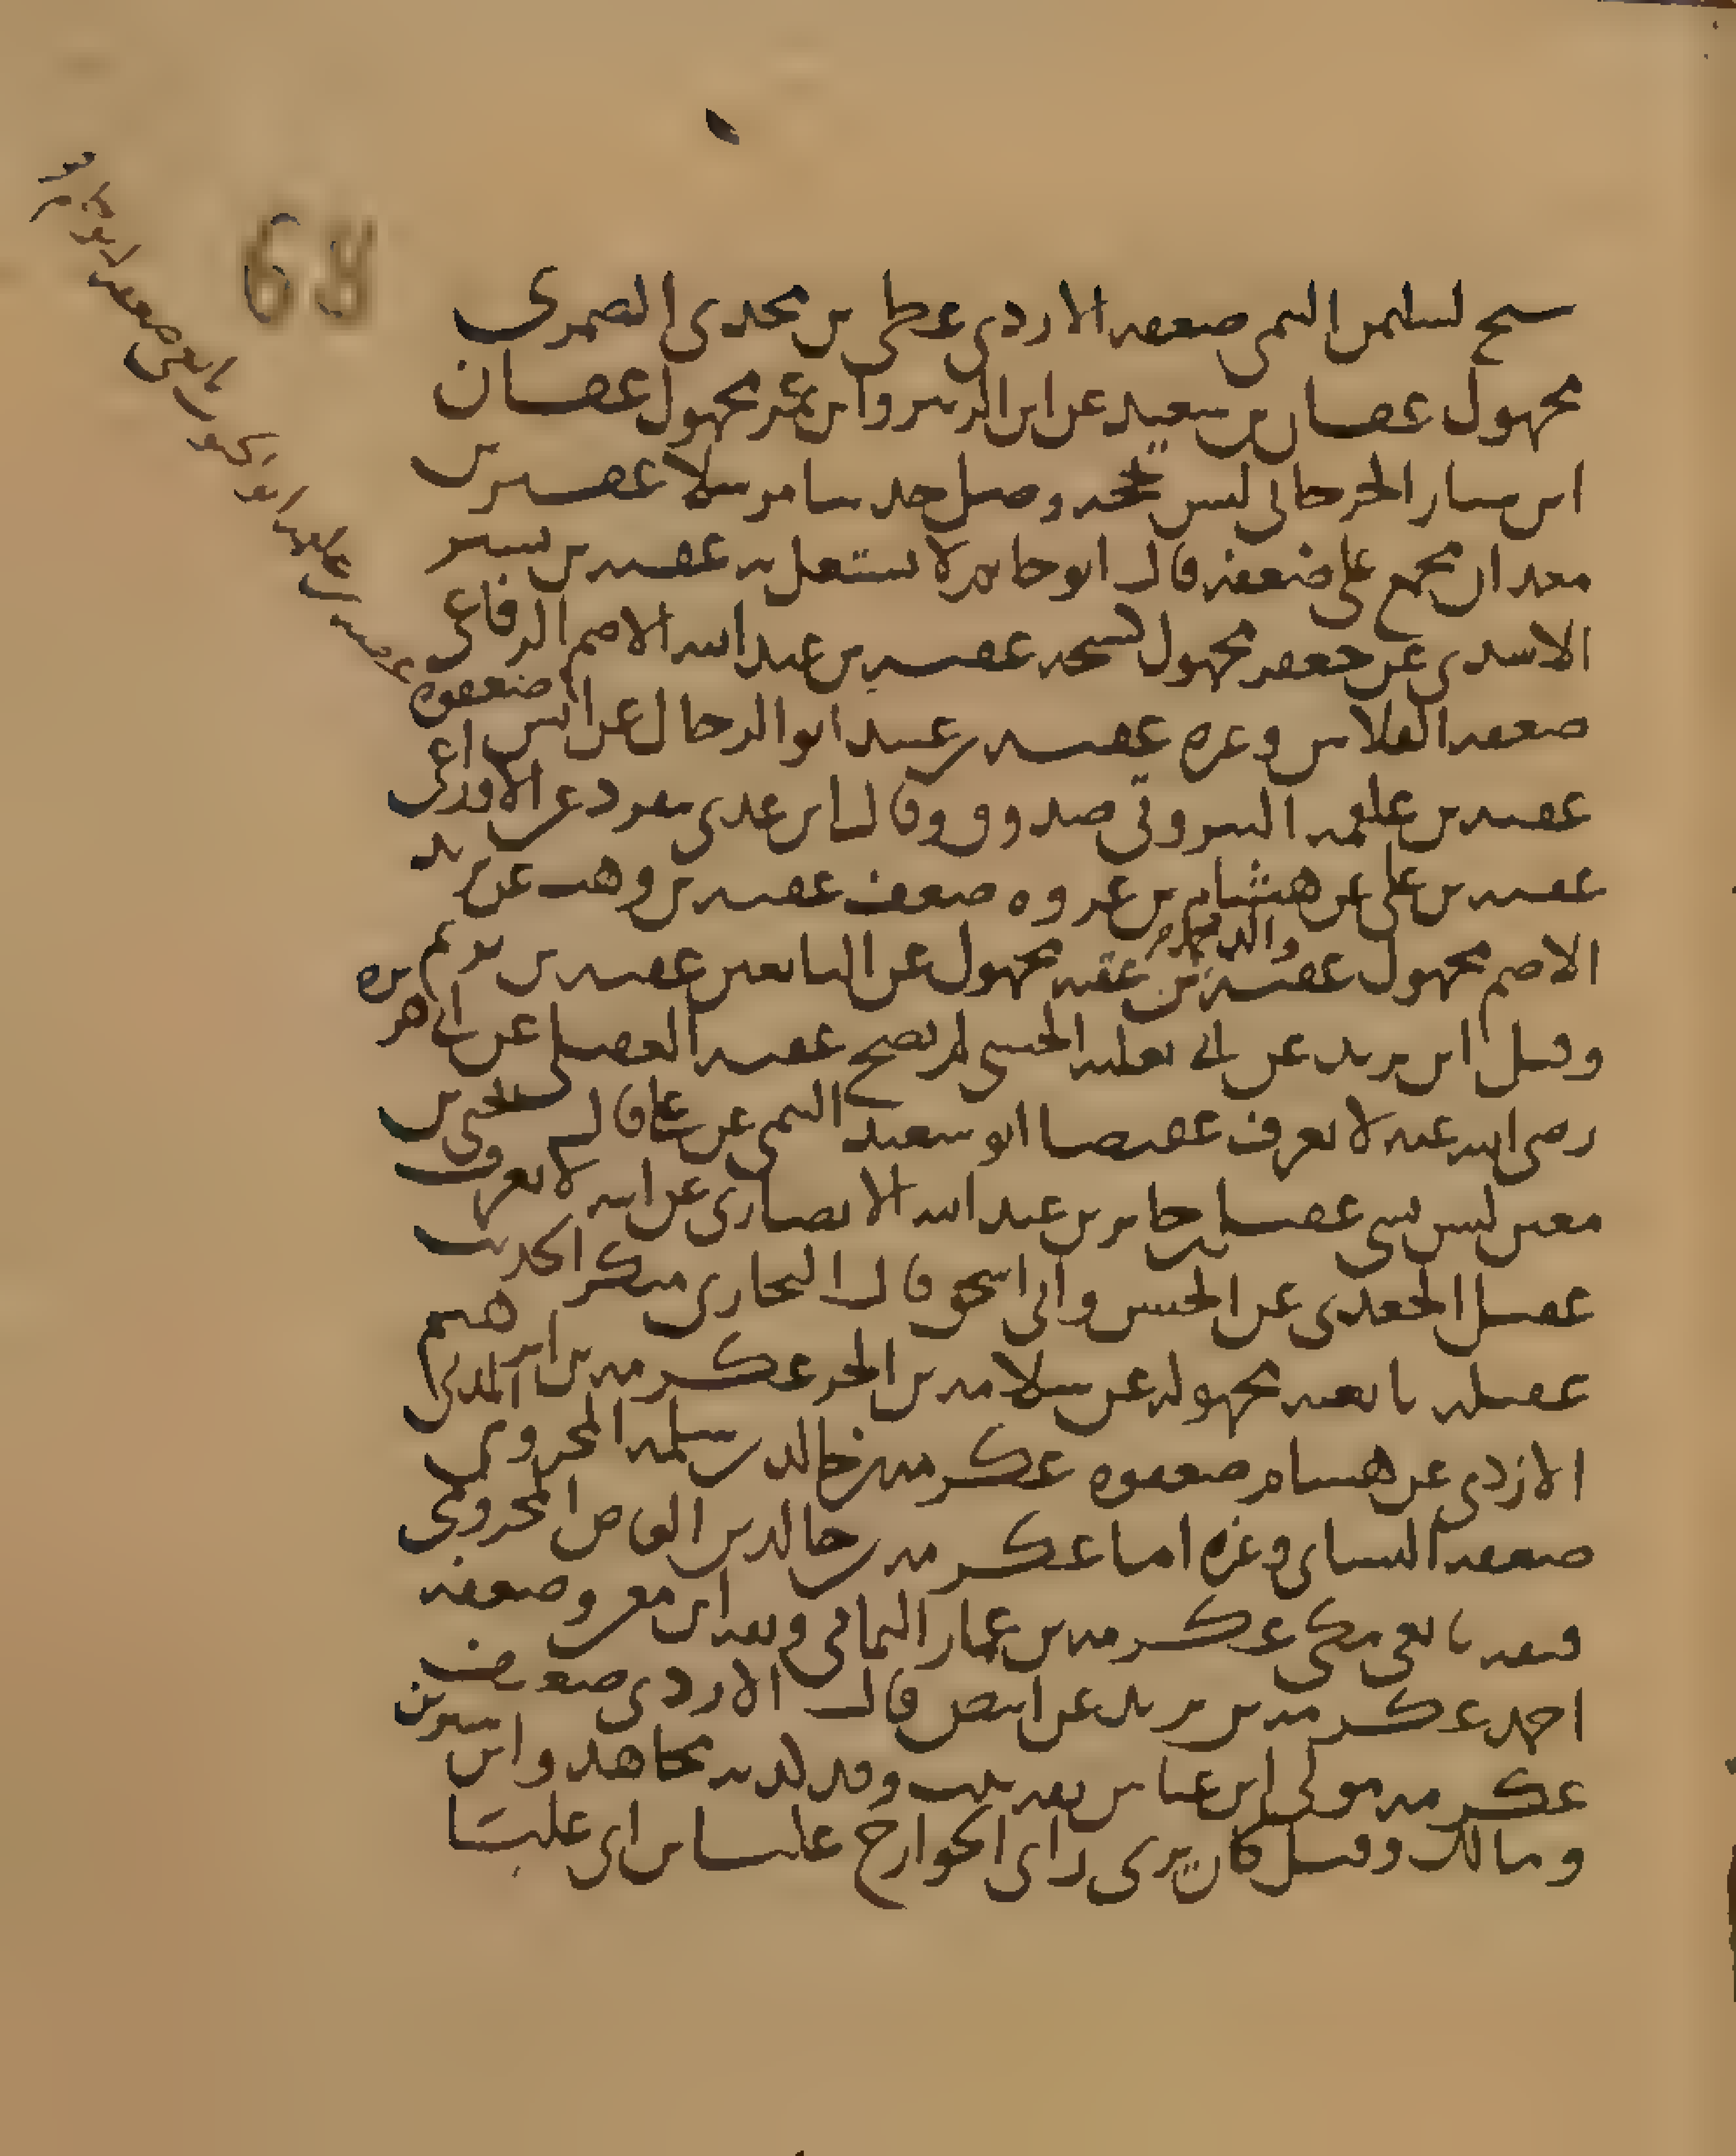 شيخ لسليمن التيمي ضعفه الازدي عطي بن مجدي الضمري
مجهول عفان بن سعيد عن ابن الزبير وابن عمر مجهول عفان
ابن سيار الجرجاني ليس بحجه وصل حديثا مرسلا عفير بن
معدان مجمع على ضعفه قال ابو حاتم لا يشتغل به عقبه بن بشير
الاسدي عن جعفر مجهول لشيخه عقبه بن عبد الله الاصم الرفاعي
ضعفه الفلاس وغيره عقبه بن عبيد ابو الرحال عن انس ضعفوه اعني
عقبه بن علقمه البيروتي صدوق وقال ابن عدي تفرد عن الاوزاعي
عقبه بن علي عن هشام بن عروه ضعف عقبه بن وهب عن يزيد
الاصم مجهول عقبة بن عقبه مجهول عن التابعين عقبه بن يريم
وقيل ابن يزيد عن ابي ثعلبه الخشني لم يصح عقبه العقيلي عن ابي هريره
رضي الله عنه لا يعرف عقيصا ابو سعيد التيمي عن علي قال يحيى بن
معين ليس بشي عقيل بن جابر بن عبد الله الانصاري عن ابيه لا يعرف
عقيل الجعدي عن الحسن وابي اسحق قال البخاري منكر الحديث
عقيله تابعيه مجهوله عن سلامه بن الحر عكرمه بن ابرهيم
الازدي عن هشام ضعفوه عكرمه بن خالد بن سلمه المخزومي المدني
ضعفه النساي وغيره اما عكرمه بن خالد بن العاص المخزومي
فثقه تابعي مكي عكرمه بن عمار اليمامي وثقه ابن معين وضعفه
احمد عكرمه بن يزيد عن ابيض قال الازدي ضعيف
عكرمه مولى ابن عباس ثقه ثبت وقد كذبه مجاهد وابن سيرين
ومالك وقيل كان يرى راي الخوارج علباء بن ابي علباء